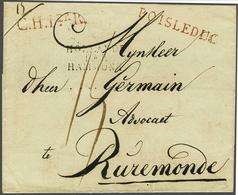 C.H.4.R.
BOISLEDUC
HOLLANDE
Mynheer
dheer Germain
Advocaat
te
Ruremonde